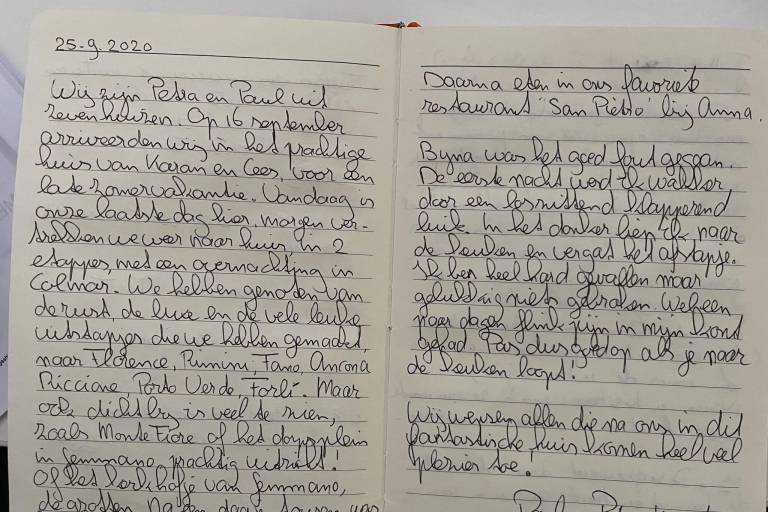 25-9-2020
Wij zijn Petra en Paul uit
Zevenhuizen. Op 16 september
arriveerden wij in het prachtige
huis van Karan en Cees, voor een
late zomervakantie. Vandaag is
onze laatste dag hier, morgen ver-
trekken we weer naar huis, in 2
etappes, met een overnachting in
Colmar. We hebben genoten van
de rust, de luxe en de vele leuke
uitstapjes die we hebben gemaakt,
naar Florence, Rimini, Fano, Ancona
Riccione, Porto Verde, Forlí. Maar
ook dichtby is veel te zien,
zoals Monte Fiore of het dorpsplein
in Gemmano, prachtig uitzicht!
Of het kerkhofje van Gemmano,
de grotten
Daarna eten in ons favoriete
restaurant "San Pietro" bij Anna.
Byna was het goed fout gegaan.
De eerste nacht werd ik wakker
door een loszittend klapperend
luik. In het donker liep ik naar
de keuken en vergat het afstapje.
Ik ben heel hard gevallen maar
gelukkig niets gebroken. Wel een
paar dagen flink pijn in mijn kont
gehad. Pas dus goed op als je naar
de keuken loopt!
Wij wensen allen die na ons in dit
fantastische huis komen heel veel
plezier toe!